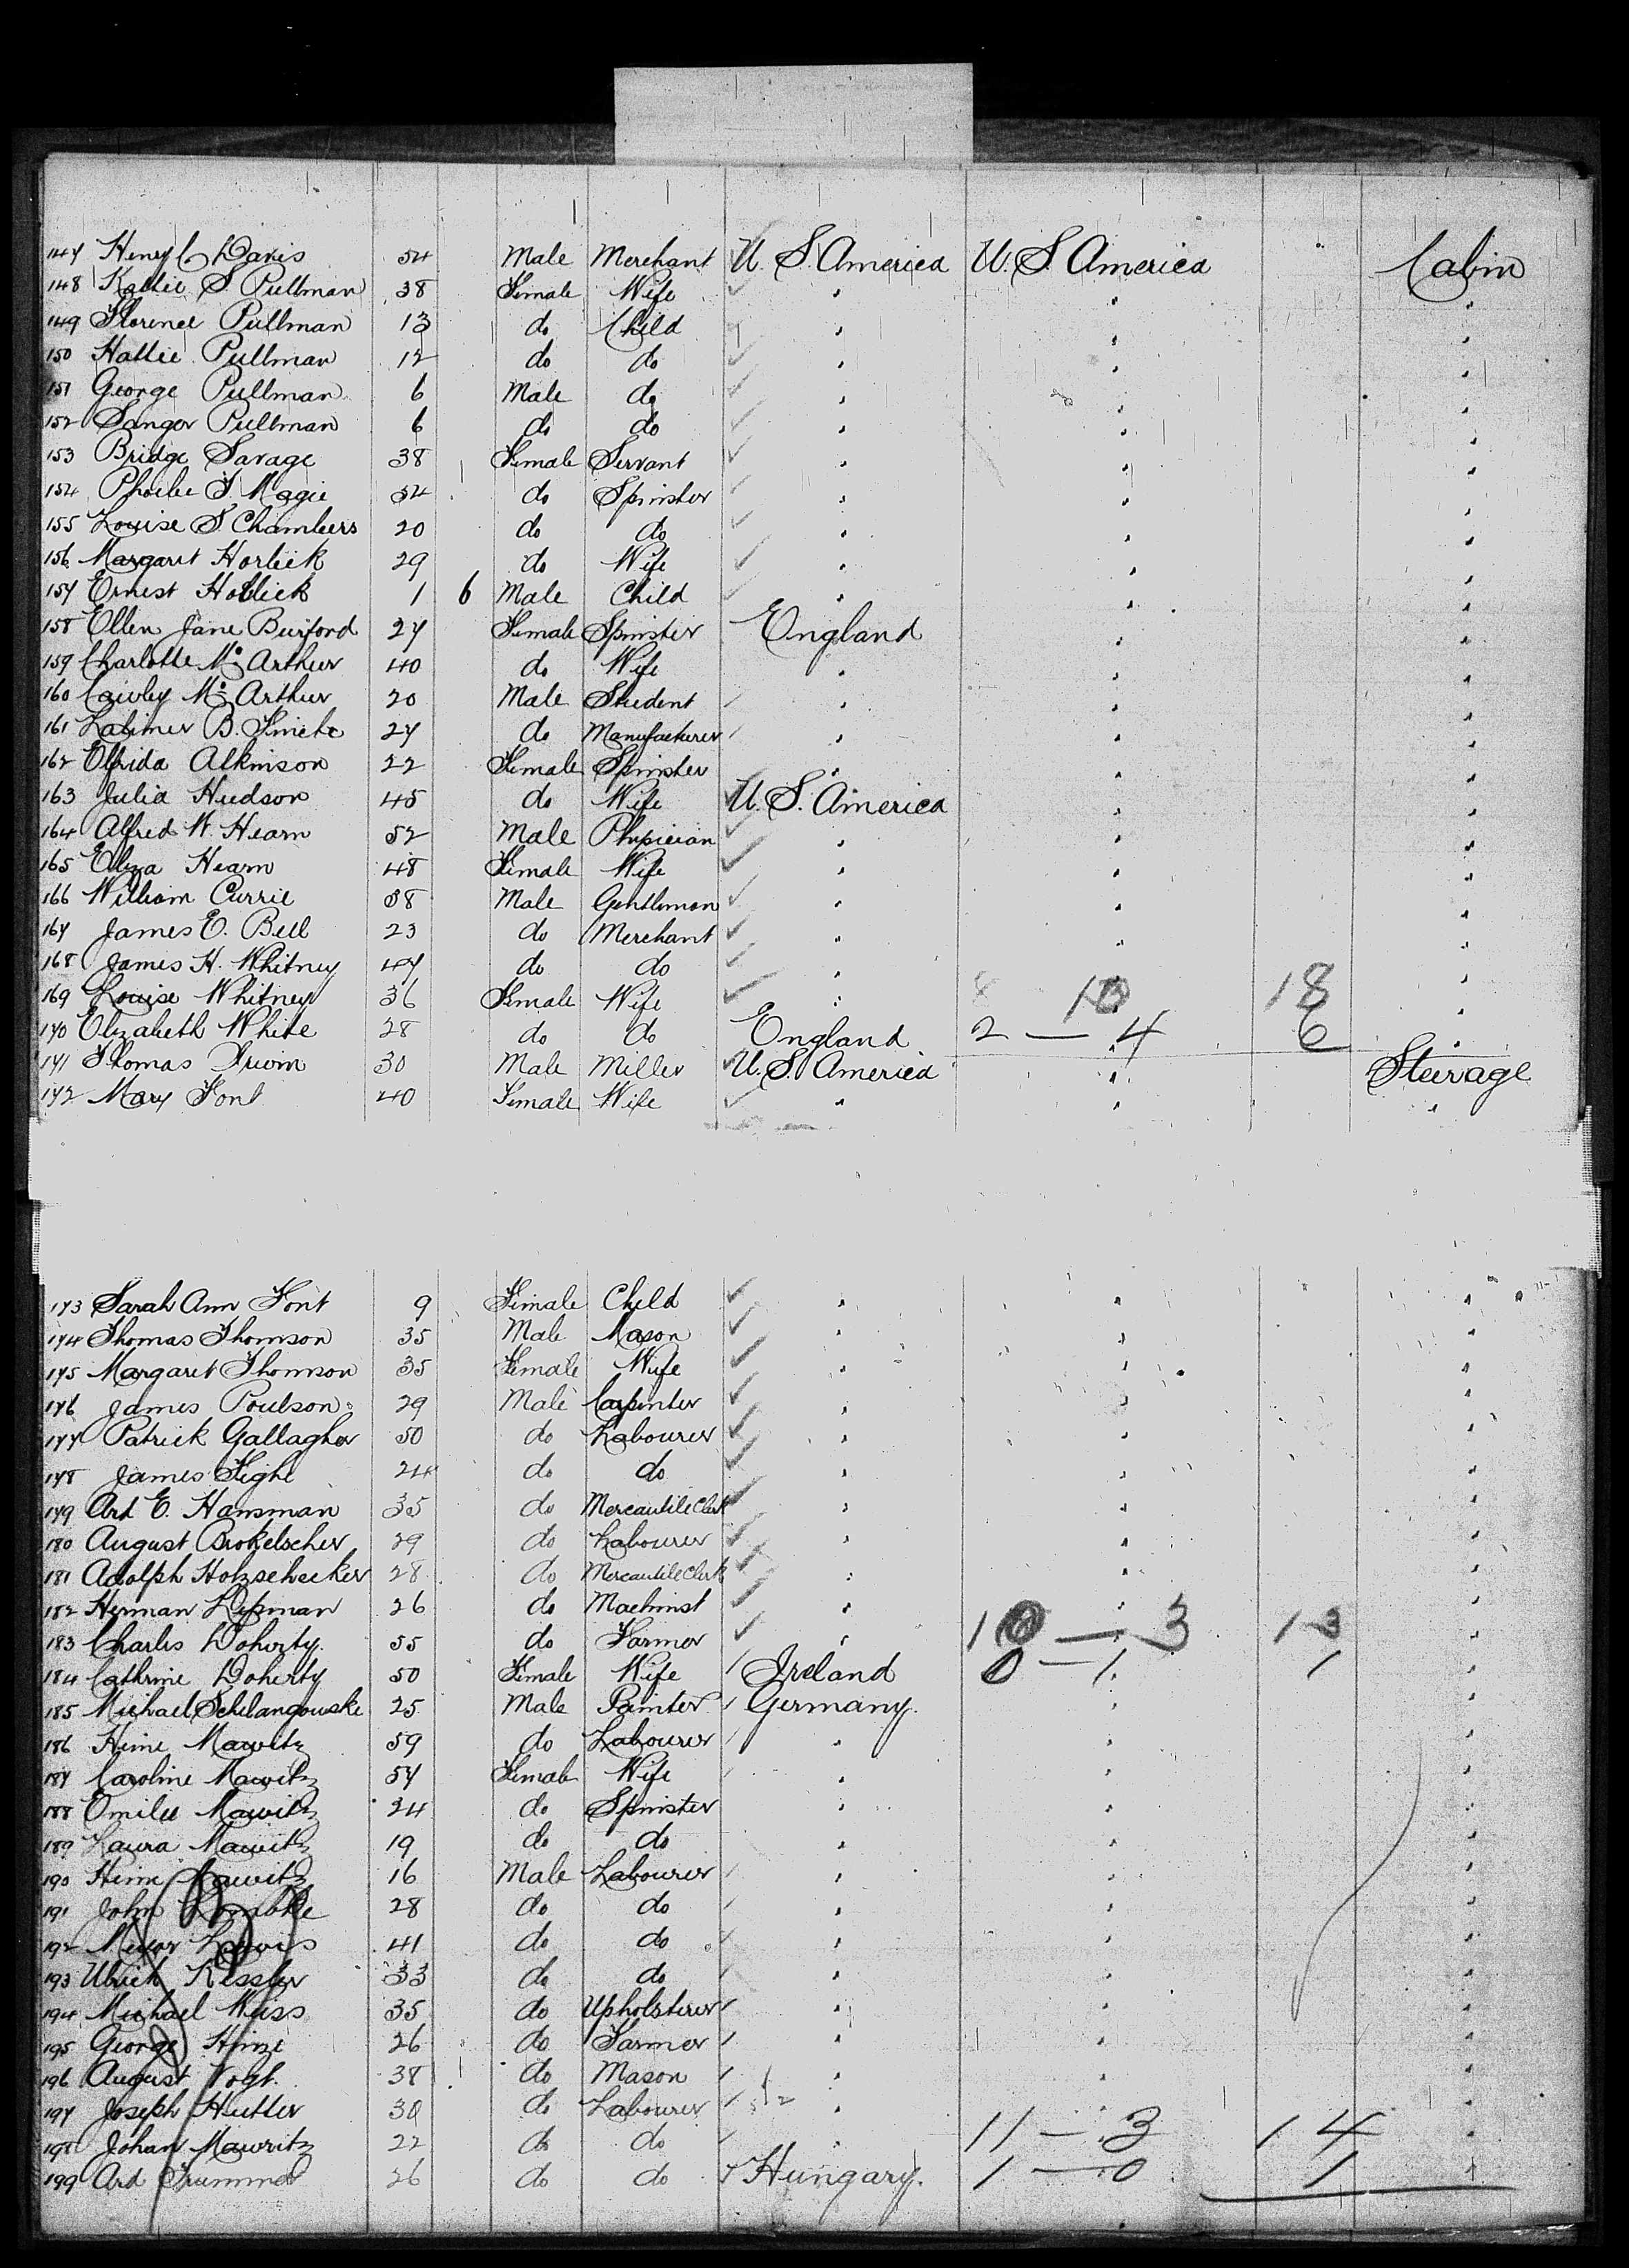 147 Henry C Davis 54 Male Merchant U. S. America U. S. America Cabin
148 Hattie S. Pullman 38 Female Wife " " "
149 Florence Pullman 13 do Child " " "
150 Hattie Pullman 12 do do " " "
151 George Pullman 6 Male do " " "
152 Sanger Pullman 6 do do " " "
153 Bridge Savage 38 Female Servant " " "
154 Phoebe J. Magie 54 do Spinster " " "
155 Louise S Chambers 20 do do " " "
156 Margaret Horlick 29 do Wife " " "
157 Ernest Horlick 1 6 Male Child " " "
158 Ellen Jane Burford 27 Female Spinster England " "
159 Charlotte Mc Arthur 40 do Wife " " "
160 Mc Arthur 20 Male Student " " "
161 Latimer B. 27 do Manufacturer " " "
162 Elfrida Atkinson 22 Female Spinster " " "
163 Julia Hudson 45 do Wife U. S. America " "
164 Alfred W. Hearn 52 Male Physician " " "
165 Eliza Hearn 48 Female Wife " " "
166 William Currie 58 Male Gentleman " " "
167 James E. Bell 23 do Merchant " " "
168 James H. Whitney 47 do do " " "
169 Louise Whitney 36 Female Wife " 18 "
170 Elizabeth White 28 do do England 2 — 4 6 "
171 Thomas Irwin 30 Male Miller U. S. America " Steerage
172 Mary Font 40 Female Wife " " "
173 Sarah Ann Font 9 Female Child " " "
174 Thomas Thomson 35 Male Mason " " "
175 Margaret Thomson 35 Female Wife " " "
176 James Poulson 29 Male Carpenter " " "
177 Patrick Gallagher 50 do Labourer " " "
178 James Tighe 24 do do " " "
179 Ard E. Hansman 35 do Mercantile Clerk " " "
180 August Brokelscher 29 do Labourer " " "
181 Adolph Holzschecker 28 do Mercantile Clerk " " "
182 Herman Lipman 26 do Machinist " " "
183 Charles Doherty 55 do Farmer " 10 — 3 13 "
184 Cathrine Doherty 50 Female Wife Ireland 0 — 1 1 "
185 Michael Schelangowske 25 Male Painter Germany. " "
186 Heine Mawitz 59 do Labourer " " "
187 Caroline Mawitz 57 Female Wife " " "
188 Emilie Mawitz 24 do Spinster " " "
189 Laura Mawitz 19 do do " " "
190 Heine Mawitz 16 Male Labourer " " "
191 John 28 do do " " "
192 Lewis 41 do do " " "
193 Ulrich Kessler 33 do do " " "
194 Michael Weiss 35 do Upholsterer " " "
195 George Hinze 26 do Farmer " " "
196 August Vogt. 38 do Mason " " "
197 Joseph Hutter 30 do Labourer " " "
198 Johan Mawritz 22 do do " 11 — 3 14 "
199 Ard 26 do do Hungary. 1 — 0 1 "